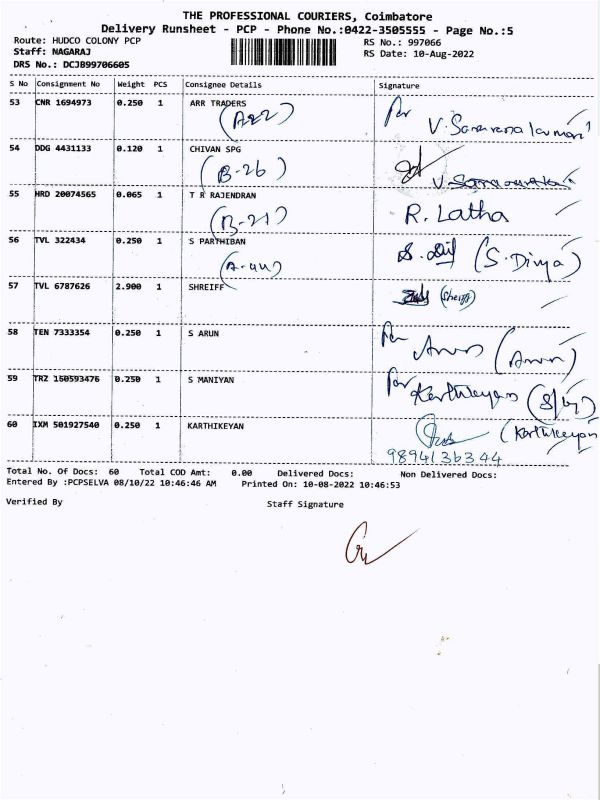 THE PROFESSIONAL COURIERS, Coimbatore
Delivery Runsheet - PCP - Phone No.:0422-3505555 - Page No.:5
Route: HUDCO COLONY PCP RS No.: 997066
Staff: NAGARAJ RS Date: 10-Aug-2022
DRS No.: DCJB99706605
S No Consignment No Weight PCS Consignee Details Signature
53 CNR 1694973 0.250 1 ARR TRADERS
(A22) For V.Saravanakumar
54 DDG 4431133 0.120 1 CHIVAN SPG
(B-26)
55 HRD 20074565 0.065 1 T R RAJENDRAN
(B-21) R. Latha
56 TVL 322434 0.250 1 S PARTHIBAN
(A-44) (S.Divya)
57 TVL 6787626 2.900 1 SHREIFF
(Sheriff)
58 TEN 7333354 0.250 1 S ARUN
For Arun (Arun)
59 TRZ 150593476 0.250 1 S MANIYAN
For Karthikeyan
60 IXM 501927540 0.250 1 KARTHIKEYAN
(Karthikeyan
9894136344
Total No. Of Docs: 60 Total COD Amt: 0.00 Delivered Docs: Non Delivered Docs:
Entered By :PCPSELVA 08/10/22 10:46:46 AM Printed On: 10-08-2022 10:46:53
Verified By Staff Signature